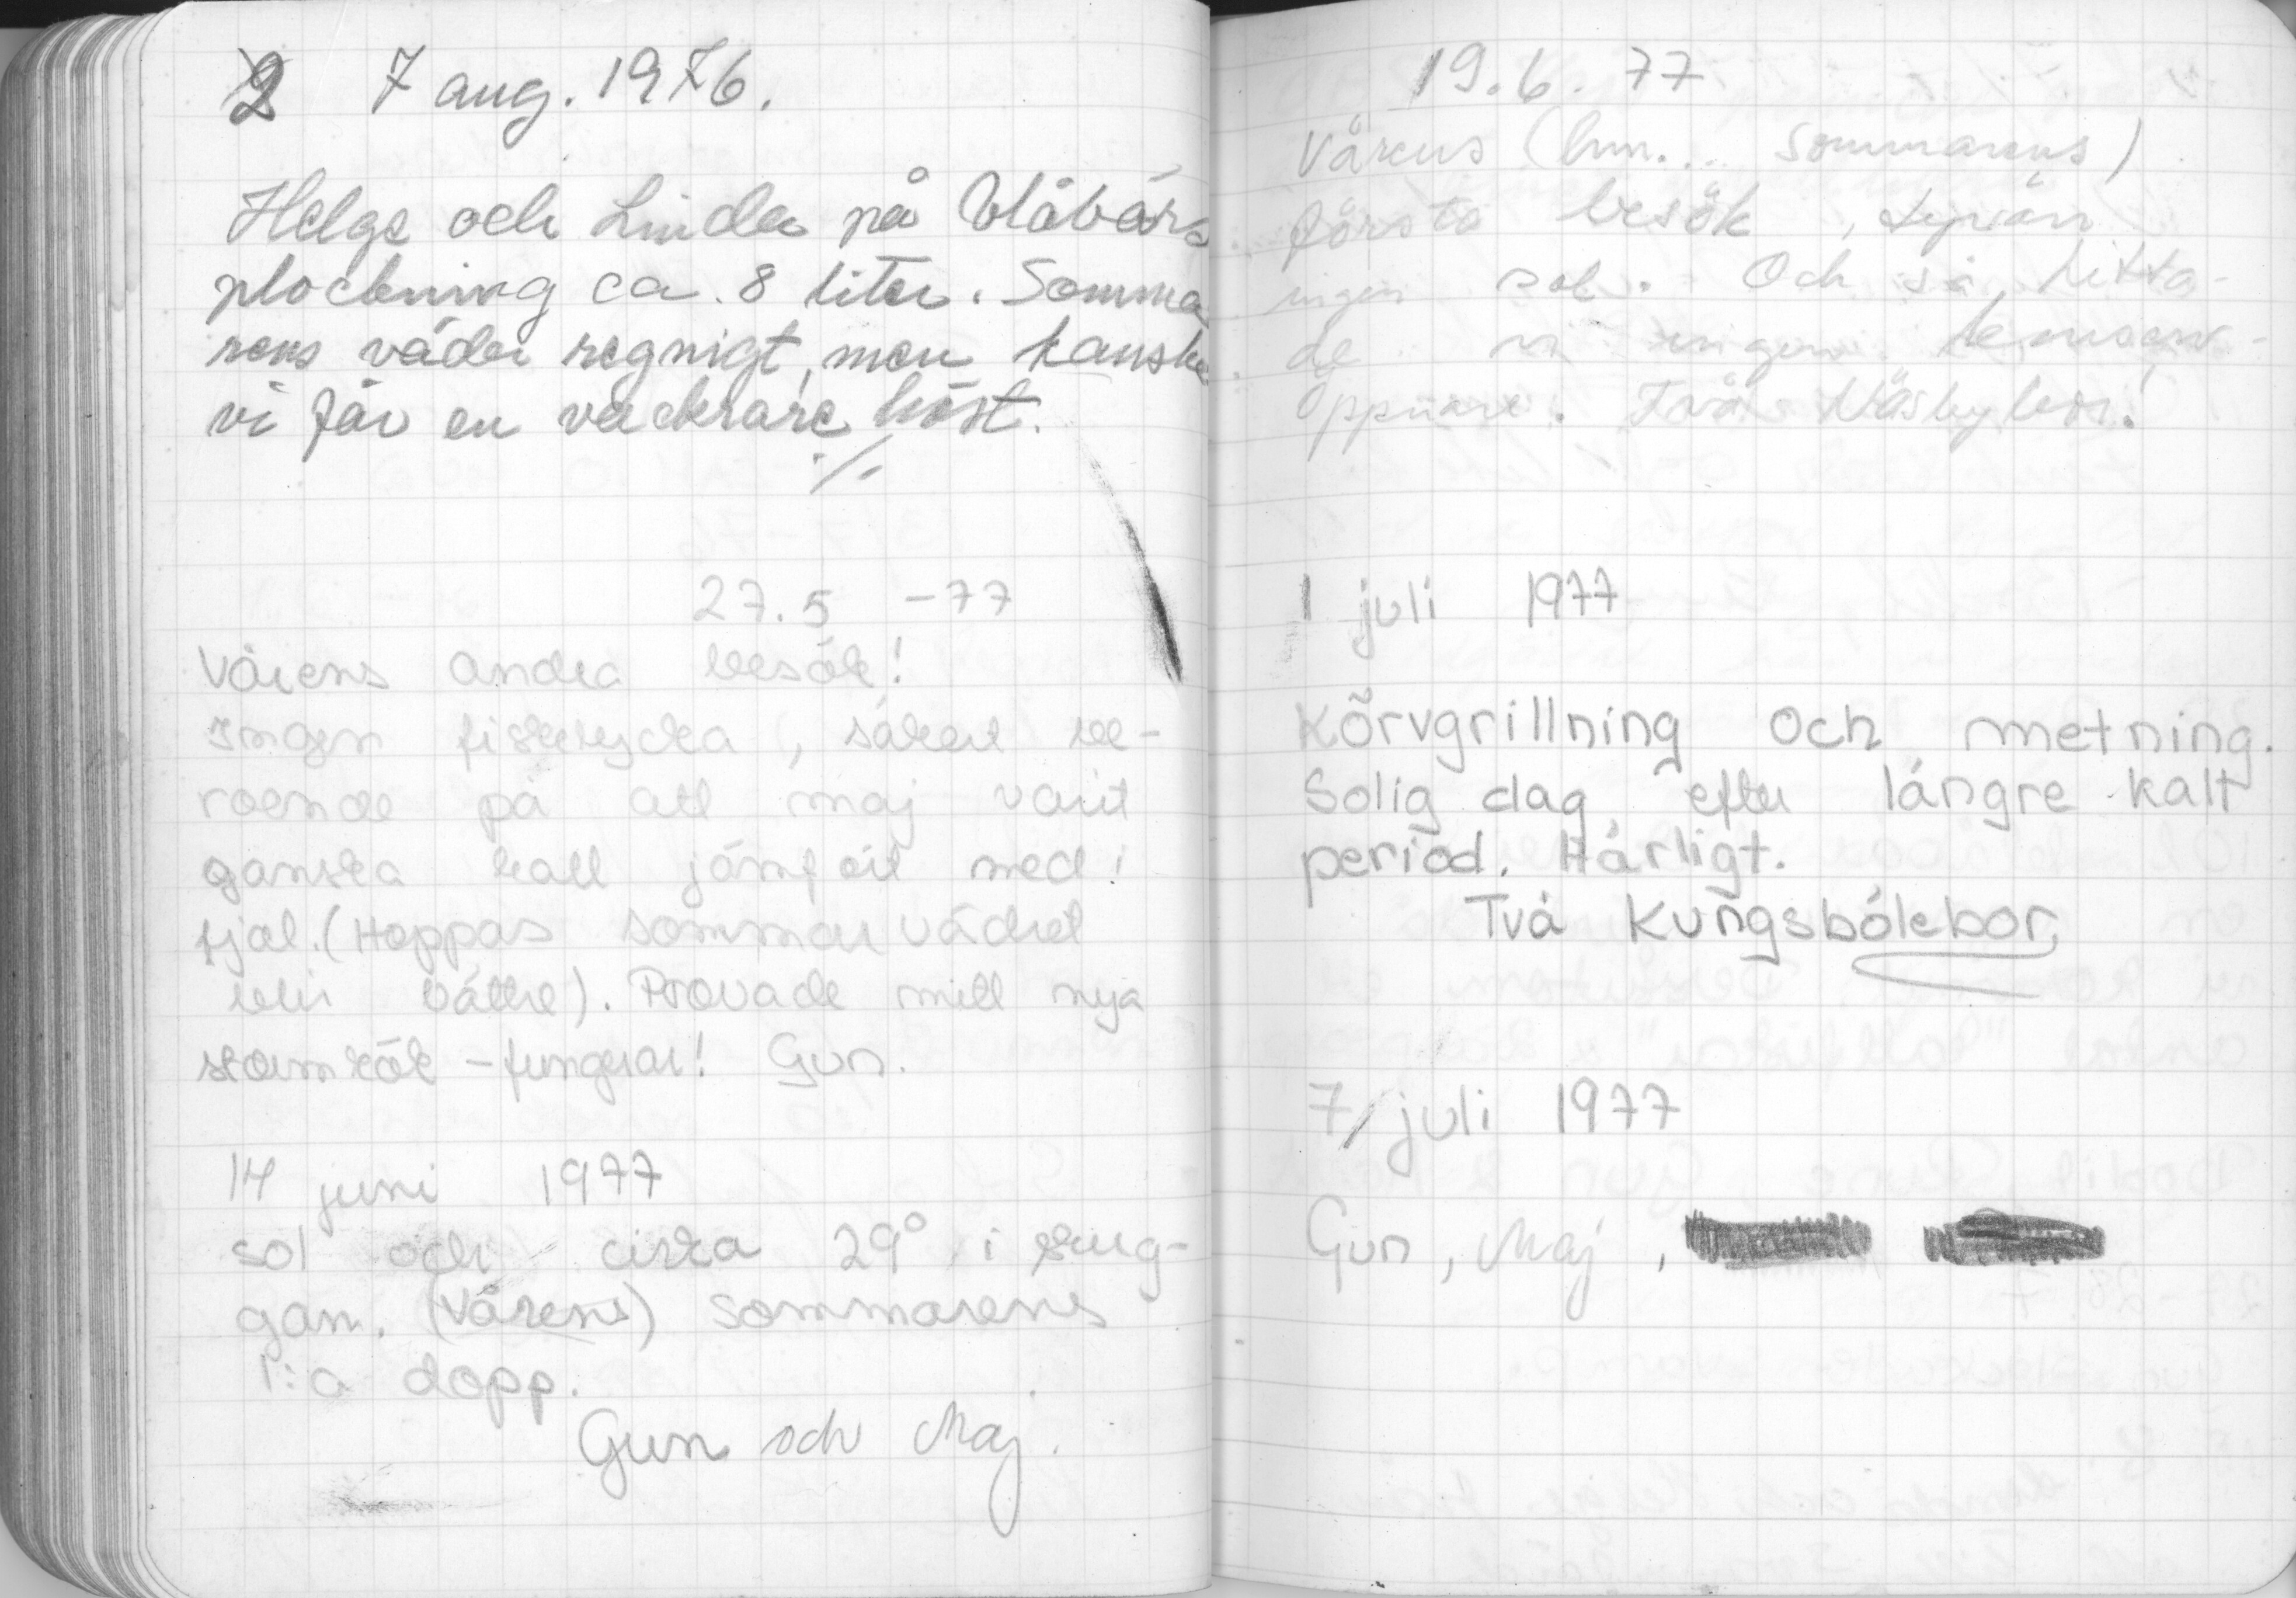 7 aug. 1976.
Helge och Linda på blåbärs
plockning ca. 8 liter. Somma
rens väder regnigt, men kanske
vi får en vackrare höst.
./.
27.5 -77
Vårens andra besök!
Ingen fiskelycka, säkert be-
roende på att maj varit
ganska kall jämfört med i
fjol. (Hoppas sommarvädret
blir bättre). Provade mitt nya
stormkök - fungerar! Gun.
14 juni 1977
sol och cirka 29° i skug-
gan. (Vårens) sommarens
1:a dopp.
Gun och Maj.
19.6. 77
Vårens (hm... sommarens)
första besök, tyvärr
ingen sol. Och så hitta-
de vi ingen
öppnare. Två Näsbybor!
1 juli 1977
Körvgrillning och metning.
Solig dag efter längre kalt
period. Härligt.
Två Kungsbölebor
7/juli 1977
Gun, Maj,